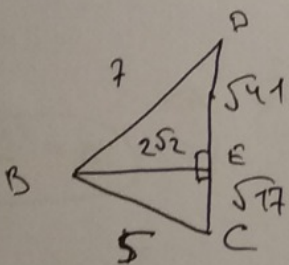 D
7
√41
2√2
E
B
√17
5
C